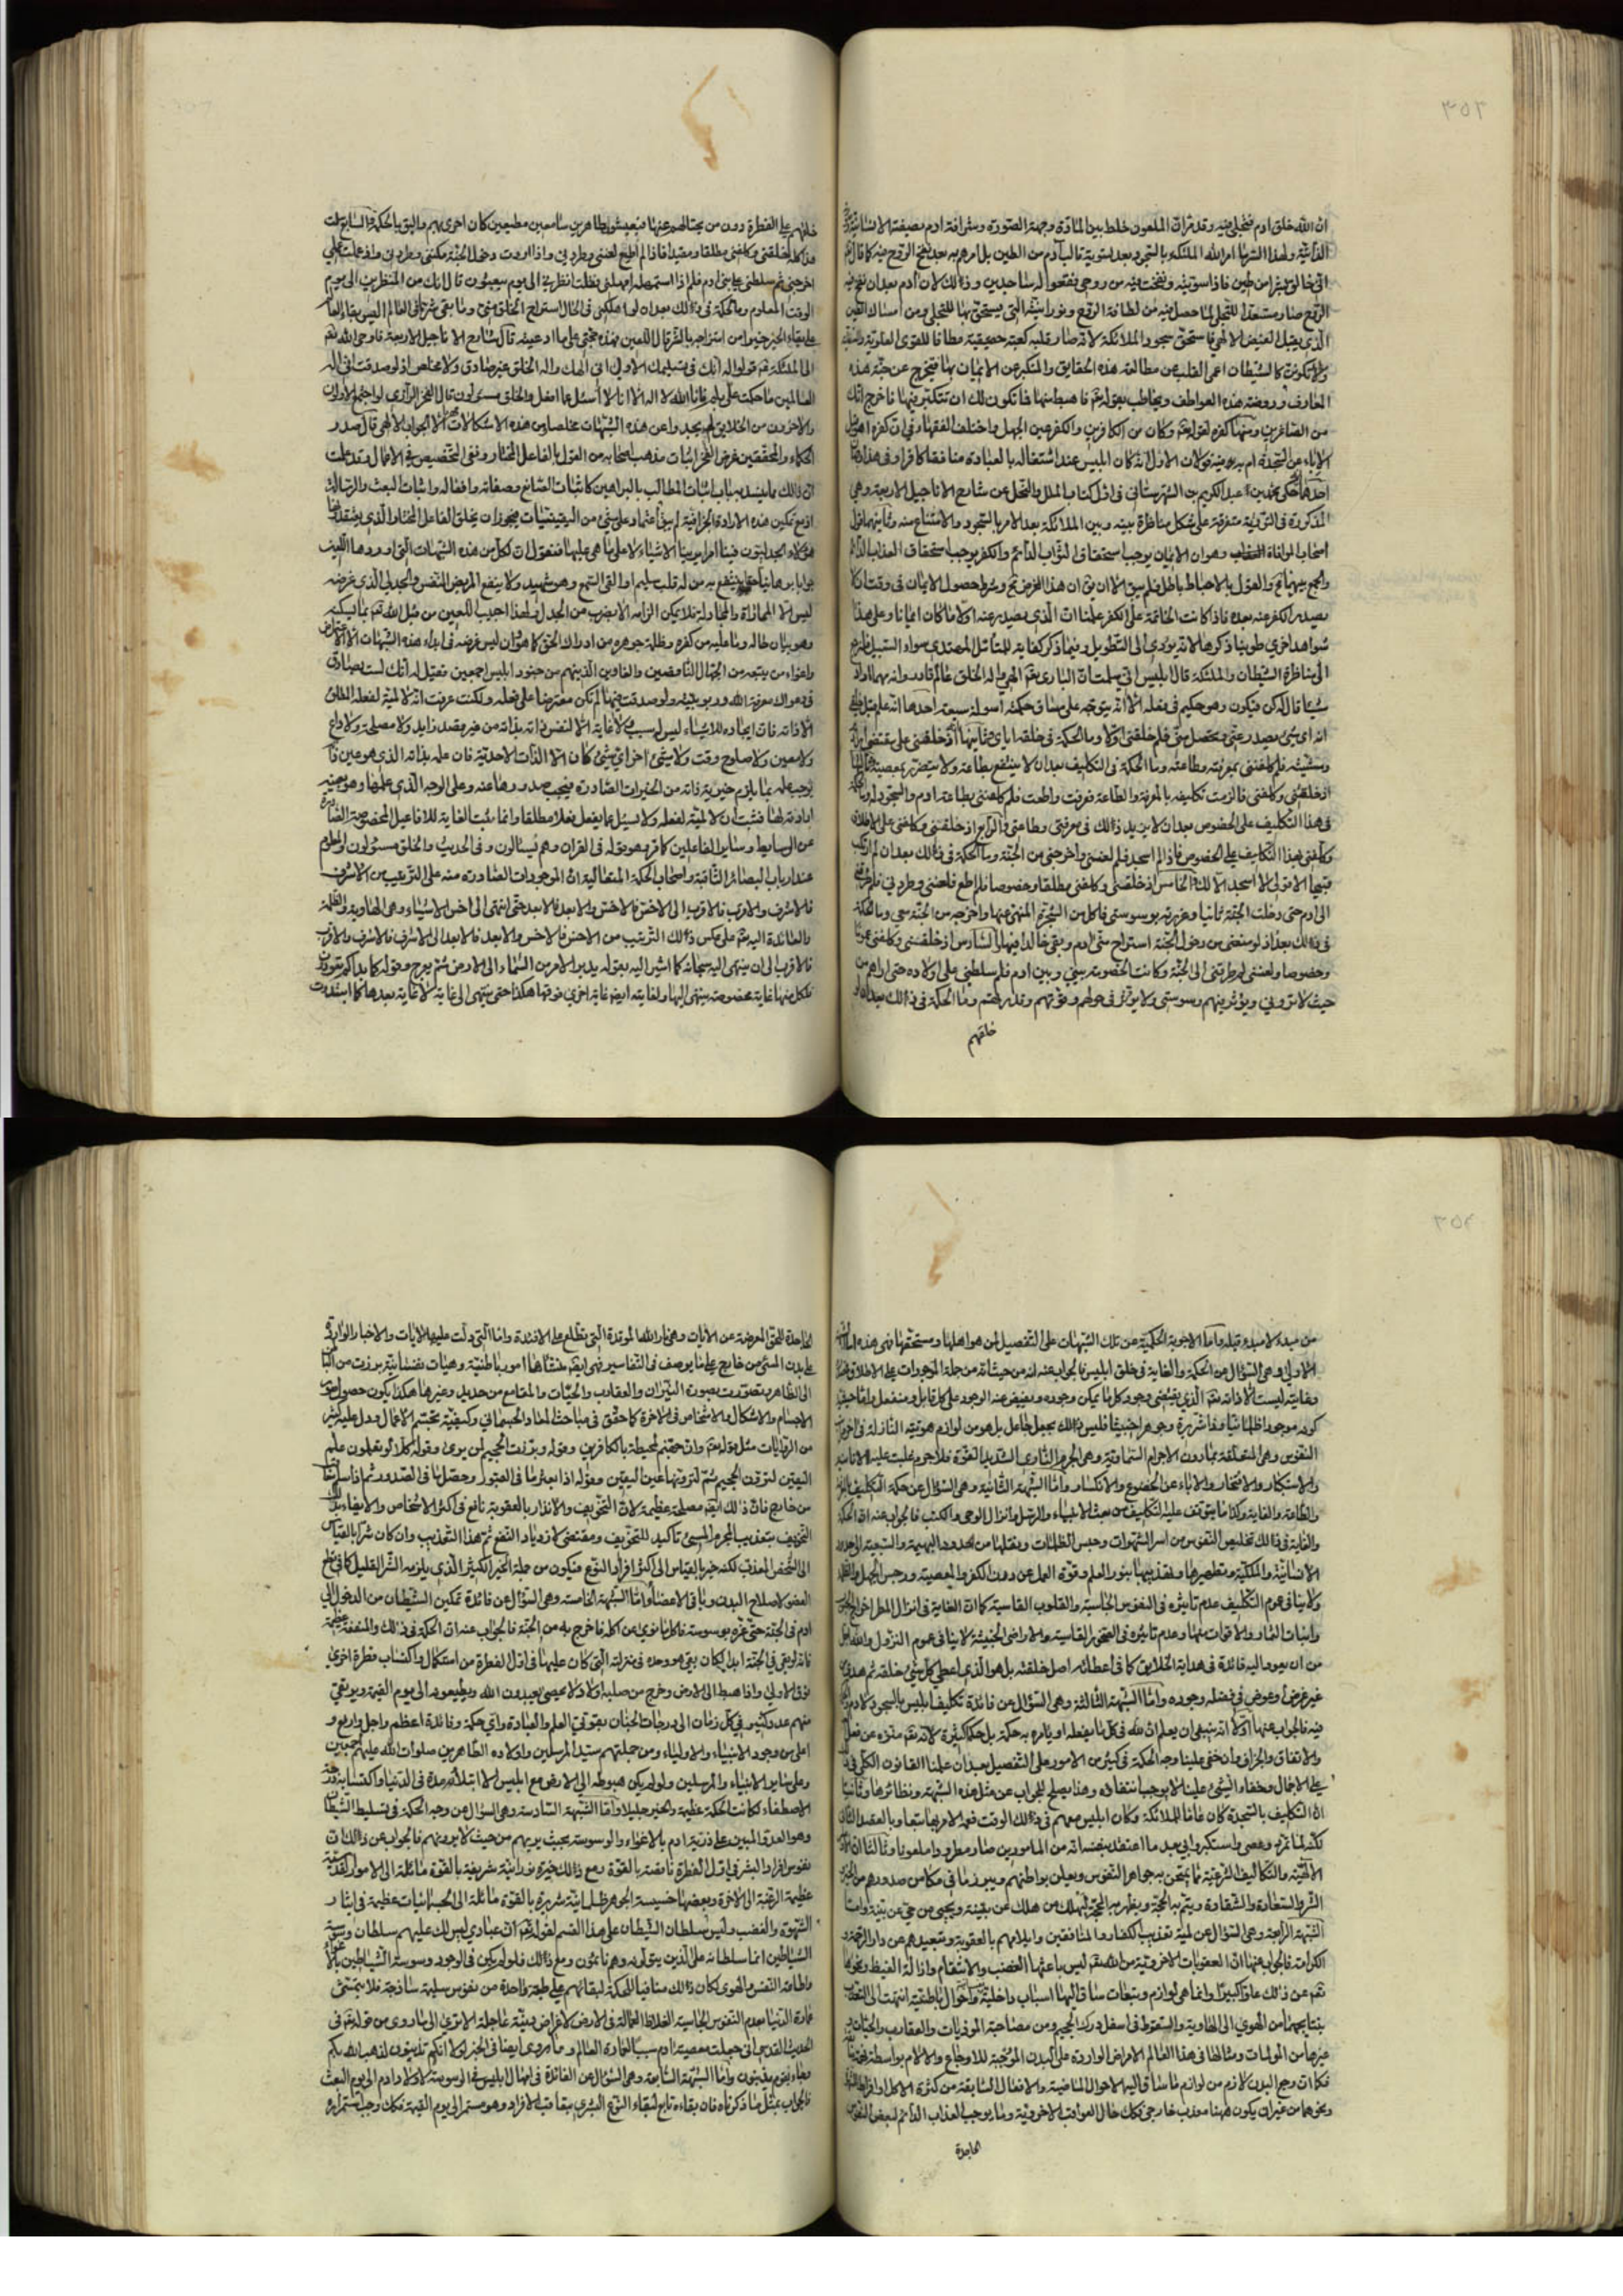 ان الله خلق ادم فتجلى فيه
الى خالق بشرا من طين فاذا سويته ونفخت فيه من روحي فقعوا له ساجدين وذلك لان ادم بعد ان نفخ فيه
الروح صار مستعدا للتجلي لما حصل فيه من لطافة الروح
الذي يقبل الفيض الالهي فاستحق سجود الملائكة لانه صار قلبه كعبة حقيقية مطافا للقوى العلوية
ولا تكونن كالشيطان اعمى القلب عن مطالعة هذه الحقايق والمتكبر عن الايمان بها فيخرج عن جنة هذه
المعارف وروضة هذه العواطف ويخاطب بقوله تعم فاهبط منها فما يكون لك ان تتكبر فيها فاخرج انك
من الصاغرين ومنها كفره لقوله تعم وكان من الكافرين والكفر عين الجهل واختلف الفقهاء في ان كفره
عبد الكريم بن الشهرستاني في اول كتاب الملل والنحل عن شارح الاناجيل الاربعة وهي
المذكورة في التورية متفرقة على شكل مناظرة بينه وبين الملائكة بعد الامر بالسجود والامتناع منه
اصحاب الموافاة وهو ان الايمان يوجب استحقاق الثواب الدائم والكفر يوجب استحقاق العقاب الدائم
شواهد اخرى طوينا ذكرها لانه يؤدي الى التطويل وفيما ذكر كفاية للمتأمل المهتدي سواء السبيل
الى مناظرة الشيطان والملئكة قال ابليس اني سلمت ان الباري تعم الهي واله الخلق عالم قادر وانه مهما اراد
شيئا قال له كن فيكون وهو حكيم في فعله الا انه يتوجه على مساق حكمته اسولة سبعة احدها انه علم قبل
انه اي شيء يصدر عني ويحصل مني فلم خلقني اولا وما الحكمة في خلقه اياي وثانيها اذ خلقني على مقتضى
ومشيته فلم كلفني بمعرفته وطاعته وما الحكمة في التكليف بعد ان لا ينتفع بطاعة ولا يتضرر بمعصية
اذ خلقني وكلفني فالزمت تكليفه بالمعرفة والطاعة فعرفت واطعت فلم كلفني بطاعة ادم والسجود له
في هذا التكليف على الخصوص بعد ان لا يزيد ذلك في معرفتي وطاعتي والرابع اذ خلقني وكلفني على الاطلاق
وكلفني بهذا التكليف على الخصوص فاذا لم اسجد فلم لعنني واخرجني من الجنة وما الحكمة في ذلك بعد ان لم ارتكب
قبيحا الا قولي لا اسجد الا لك والخامس اذ خلقني وكلفني مطلقا وخصوصا فلم اطع فلعنني وطردني فلم
الى ادم حتى دخلت الجنة ثانيا وغررته بوسوستي فاكل من الشجرة المنهي عنها واخرجه من الجنة معي وما الحكمة
في ذلك بعد اذ لو منعني من دخول الجنة استراح مني ادم وبقي خالدا فيها والسادس اذ خلقني وكلفني
وخصوصا ولعنني ثم طرقني الى الجنة وكانت الخصومة بيني وبين ادم فلم سلطني على اولاده حتى اراهم من
حيث لا يروني ويؤثر فيهم وسوستي ولا يؤثر في حولهم وقوتهم وقدرتهم وما الحكمة في ذلك بعد ان
خلقهم
خلقهم على الفطرة دون من يحتالهم عنها فيعيشوا طاهرين سامعين مطيعين كان احرى بهم واليق بالحكمة والسابع سلمت
هذا كله خلقني وكلفني مطلقا ومقيدا فاذا لم اطع لعنني وطردني واذا اردت دخول الجنة مكنني وطرقني واذ عملت عملي
اخرجني ثم سلطني على بني ادم فلم اذا استمهلته امهلني فقلت انظرني الى يوم يبعثون قال انك من المنظرين الى يوم
الوقت المعلوم وما الحكمة في ذلك بعد ان لو اهلكني في الحال استراح الخلق مني وما بقي شر ما في العالم اليس بقاء العالم
على بقاء الخير خيرا من امتزاجه بالشر قال اللعين فهذه حجتي على ما ادعيته قال شارح الاناجيل الاربعة فاوحى الله تعم
الى الملئكة عم قولوا له انك في تسليمك الاول اني الهك واله الخلق غير صادق ولا مخلص اذ لو صدقت اني اله
العالمين ما حكمت علي بلم فانا الله لا اله الا انا لا اسئل عما افعل والخلق مسئولون قال الفخر الرازي لو اجتمع الاولون
والاخرون من الخلايق لم يجدوا عن هذه الشبهات مخلصا من هذه الاشكالات الا الجواب الالهي قال صدر
الحكماء والمحققين غرض الفخر اثبات مذهب اصحابه من القول بالفاعل المختار ونفي المخصص في الافعال وقد علمت
ان ذلك مما ينسد به باب اثبات المطالب بالبراهين كاثبات الصانع وصفاته وافعاله واثبات البعث والرسالة
اذ مع تمكين هذه الارادة الجزافية لم يبق اعتماد على شيء من اليقينيات فيجوز ان يخلق الفاعل المختار الذي يعتقدونه
هؤلاء الجدليون فينا امرا يرينا الاشياء لا على ما هي عليها فنقول ان لكل من هذه الشبهات التي اوردها اللعين
جوابا برهانيا حقا ينتفع به من له قلب سليم او القى السمع وهو شهيد ولا ينتفع المريض النفس والجدلي الذي غرضه
ليس الا المماراة والمجادلة فلا يمكن الزامه الا بضرب من الجدل ولهذا اجيب اللعين من قبل الله تعم بما يسكته
وهو بيان حاله وما عليه من كفره وظلمة جوهره من ادراك الحق كما هو وان ليس غرضه في ابداء هذه الشبهات الا الاعتراض
واغواء من يتبعه من الجهال الناقصين والغاوين الذين هم من جنود ابليس اجمعين فقيل له انك لست بصادق
في دعواك معرفة الله وربوبيته ولو صدقت فيها لم تكن معترضا على فعله ولكنت عرفت انه لا لمية لفعله المطلق
الا ذاته فان ايجاده للاشياء ليس له سبب ولا غاية الا نفس ذاته بذاته من غير مقصد زايد ولا مصلحة ولا داع
ولا معين ولا صلوح وقت ولا شيء اخر اي شيء كان الا الذات الاحدية فان علمه بذاته الذي هو عين ذاته
يوجب علمه بما يلزم خيرية ذاته من الخيرات الصادرة فيجب صدورها عنه وعلى الوجه الذي علمها وهو بعينه
ارادته لها فثبت ان لا لمية لفعله ولا يسئل عما يفعل فعلا مطلقا وانما يثبت الغاية للافاعيل المخصوصة الصادرة
عن الوسايط وساير الفاعلين كما قرر وهو قوله في القران وهم يسئلون وفي الحديث والخلق مسئولون والمعلوم
عند ارباب البصائر الثاقبة واصحاب الحكمة المتعالية ان الموجودات الصادرة منه على الترتيب من الاشرف
فالاشرف والاقرب فالاقرب الى الاخس فالاخس والابعد فالابعد حتى انتهى الى اخس الاشياء وهي الهاوية والظلمة
والعائدة اليه تعم على عكس ذلك الترتيب من الاخس فالاخس والابعد فالابعد الى الاشرف فالاشرف والاقرب
فالاقرب الى ان ينتهي اليه سبحانه كما اشير اليه بقوله يدبر الامر من السماء الى الارض ثم يعرج وقوله كما بداكم تعودون
فلكل منها غاية مخصوصة ينتهي اليها ولغايته ايضا غاية اخرى فوقها هكذا حتى ينتهي الى غاية لا غاية بعدها كما ابتدات
من مبدء لا مبدء قبله واما الاجوبة الحكمية عن تلك الشبهات على التفصيل لمن هو اهلها ومستحقها فهي هذه اما الشبهة
الاولى وهي السؤال عن الحكمة والغاية في خلق ابليس فالجواب عنه انه من حيث انه من جملة الموجودات على الاطلاق
وغايته ليست الا ذاته تعم الذي يقتضي وجود كل ما يمكن وجوده ويفيض عنه الوجود على كل قابل ومنفعل واما حيثية
كونه موجودا ظلمانيا وذا شرارة وجوهرا خبيثا فليس ذلك بجعل جاعل بل هو من لوازم هويته النازلة في اخر
النفوس وهي المتعلقة بما دون الاجرام السماوية وهي الجرم الناري الشديد القوة فلا جرم غلبت عليه الانانية
والاستكبار والافتخار والاباء عن الخضوع والانكسار واما الشبهة الثانية وهي السؤال عن حكمة التكليف
والطاعة والغاية وكذا ما يتوقف عليه التكليف من بعث الانبياء والرسل وانزال الوحي والكتب فالجواب عنه ان الحكمة
والغاية في ذلك تخليص النفوس من اسر الشهوات وحبس الظلمات ونقلها من حدود البهيمية والسبعية الى حدود
الانسانية والملكية وتطهيرها وتهذيبها بنور العلم وقوة العمل عن درن الكفر والمعصية ورجس الجهل والظلمة
ولا ينافي عموم التكليف عدم تاثيره في النفوس الجاسية والقلوب القاسية كما ان الغاية في انزال المطر اخراج الحبوب
وانبات الثمار والاقوات منها وعدم تاثيره في الصخور القاسية والاراضي الخبيثة لا ينافي عموم النزول والله اجل
من ان يعود اليه فائدة في هداية الخلايق كما في اعطائه اصل خلقته بل هو الذي اعطى كل شيء خلقه ثم هدى
غير غرض وعوض في فضله وجوده واما الشبهة الثالثة وهي السؤال عن فائدة تكليف ابليس بالسجود لادم
فيه فالجواب عنها اولا انه ينبغي ان يعلم ان لله في كل ما يفعله او يامر به حكمة بل حكما كثيرة لانه تعم منزه عن فعل
والاتفاق والجزاف وان خفي علينا وجه الحكمة في كثير من الامور على التفصيل بعد ان علمنا القانون الكلي في
على الاجمال وخفاء الشيء علينا لا يوجب انتفاءه وهذا يصلح للجواب عن مثل هذه الشبهة ونظائرها وثانيا
ان التكليف بالسجدة كان عاما للملائكة وكان ابليس معهم في ذلك الوقت فعمه الامر بها تبعا وبالقصد الثاني
لكنه لما تمرد وعصى واستكبر وابى بعد ما اعتقد بنفسه انه من المامورين صار مطرودا ملعونا وثالثا ان
الالهية والتكاليف الشرعية مما يمتحن به جواهر النفوس ويعلن بواطنهم ويبرز ما في مكامن صدورهم من الخير
والشر والسعادة والشقاوة ويتم به الحجة ويظهر به المحجة ليهلك من هلك عن بينة ويحيى من حي عن بينة واما
الشبهة الرابعة وهي السؤال عن لمية تعذيب الكفار والمنافقين وايلامهم بالعقوبة وتبعيدهم عن دار الرحمة و
الكرامة فالجواب عنها ان العقوبات الاخروية من الله تعم ليس باعثها الغضب والانتقام وازالة الغيظ ونحوها
تعم عن ذلك علوا كبيرا وانما هي لوازم وتبعات ساق اليها اسباب داخلية واحوال باطنية انتهت الى التعذب
بنتايجها من الهوى الى الهاوية والسقوط في اسفل درك الجحيم ومن مصاحبة الموذيات والعقارب والحيات و
غيرها من المولمات ومثالها في هذا العالم الامراض الواردة على البدن الموجبة للاوجاع والالام بواسطة نهمة
فكما ان وجع البدن لازم من لوازم ما ساق اليه الاحوال الماضية والافعال السابقة من كثرة الاكل او افراط الشهوة
ونحوهما من غير ان يكون ههنا معذب خارجي فكذلك حال العواقب الاخروية وما يوجب العذاب الدائم لبعض النفوس
الجاحدة
الجاحدة للحق المعرضة عن الايات وهي نار الله الموقدة التي تطلع على الافئدة واما التي دلت عليها الايات والاخبار الواردة
على بدن المسيء من خارج على ما يوصف في التفاسير فهي ايضا منشاها امور باطنية وهيات نفسانية برزت من الباطن
الى الظاهر وتصورت بصورة النيران والعقارب والحيات والمقامع من حديد وغيرها هكذا يكون حصول
الاجسام والاشكال والاشخاص في الاخرة كما حقق في مباحث المعاد الجسماني وكيفية تجسم الاعمال ودل عليه كثير
من الروايات مثل قوله تعم وان جهنم لمحيطة بالكافرين وقوله وبرزت الجحيم لمن يرى وقوله كلا لو تعلمون علم
اليقين لترون الجحيم ثم لترونها عين اليقين وقوله اذا بعثر ما في القبور وحصل ما في الصدور ثم اذا سلم
من خارج فان ذلك ايضا مصلحة عظيمة لان التخويف والانذار بالعقوبة نافع في اكثر الاشخاص والايفاء بذلك
التخويف بتعذيب المجرم المسيء تاكيد للتخويف ومقتضى لازدياد النفع ثم هذا التعذيب وان كان شرا بالقياس
الى الشخص المعذب لكنه خير بالقياس الى اكثر افراد النوع فيكون من جملة الخير الكثير الذي يلزمه الشر القليل كما في قطع
العضو لاصلاح البدن وباقي الاعضاء واما الشبهة الخامسة وهي السؤال عن فائدة تمكين الشيطان من الدخول الى
ادم في الجنة حتى غره بوسوسته فاكل ما نهي عن اكله فاخرج به من الجنة فالجواب عنه ان الحكمة في ذلك والمنفعة عظيمة
فانه لو بقي في الجنة ابدا لكان بقي هو وحده في منزلته التي كان عليها في اول الفطرة من غير استكمال واكتساب فطرة اخرى
فوق الاولى واذا هبط الى الارض وخرج من صلبه اولاد لا يحصى يعبدون الله ويطيعونه الى يوم القيمة ويرتقي
منهم عدد كثير في كل زمان الى درجات الجنان بقوتي العلم والعبادة واي حكمة وفائدة اعظم واجل وارفع و
اعلى من وجود الانبياء والاولياء ومن جملتهم سيد المرسلين واولاده الطاهرين صلوات الله عليهم اجمعين
وعلى ساير الانبياء والمرسلين ولو لم يكن هبوطه الى الارض مع ابليس الا ابتلاؤه مدة في الدنيا واكتسابه درجة
الاصطفاء لكانت الحكمة عظيمة والخير جليلا واما الشبهة السادسة وهي السؤال عن وجه الحكمة في تسليط الشيطان
وهو العدو المبين على ذرية ادم بالاغواء والوسوسة بحيث يريهم من حيث لا يرونهم فالجواب عن ذلك ان
نفوس افراد البشر في اول الفطرة ناقصة بالقوة ومع ذلك خيرة نورانية شريفة بالقوة مائلة الى الامور القدسية
عظيمة الرغبة الى الاخرة وبعضها خسيسة الجوهر ظلمانية شريرة بالقوة مائلة الى الجسمانيات عظيمة في ايثار
الشهوة والغضب وليس سلطان الشيطان على هذا القسم لقوله تعم ان عبادي ليس لك عليهم سلطان وسوسة
الشياطين انما سلطانه على الذين يتولونه ومع ذلك فلو لم يكن في الوجود وسوسة الشياطين بالاغواء
واطاعة النفس والهوى لكان ذلك منافيا للحكمة لبقائهم على طبقة واحدة من نفوس سليمة ساذجة فلا يتمشى
عمارة الدنيا بعدم النفوس الجاسية الغلاظ العمالة في الارض لاغراض دنية عاجلة الا ترى الى ما روي من قوله تعم في
الحديث القدسي اني جعلت معصية ادم سببا لعمارة العالم وما روي ايضا في الخبر لولا انكم تذنبون لذهب الله بكم
وجاء بقوم يذنبون واما الشبهة السابعة وهي السؤال عن الفائدة في امهال ابليس في الوسوسة لاولاد ادم الى يوم البعث
فالجواب بمثل ما ذكرناه فان بقاءه تابع لبقاء النوع البشري بتعاقب الافراد وهو مستمر الى يوم القيمة فكذلك وجب استمراره